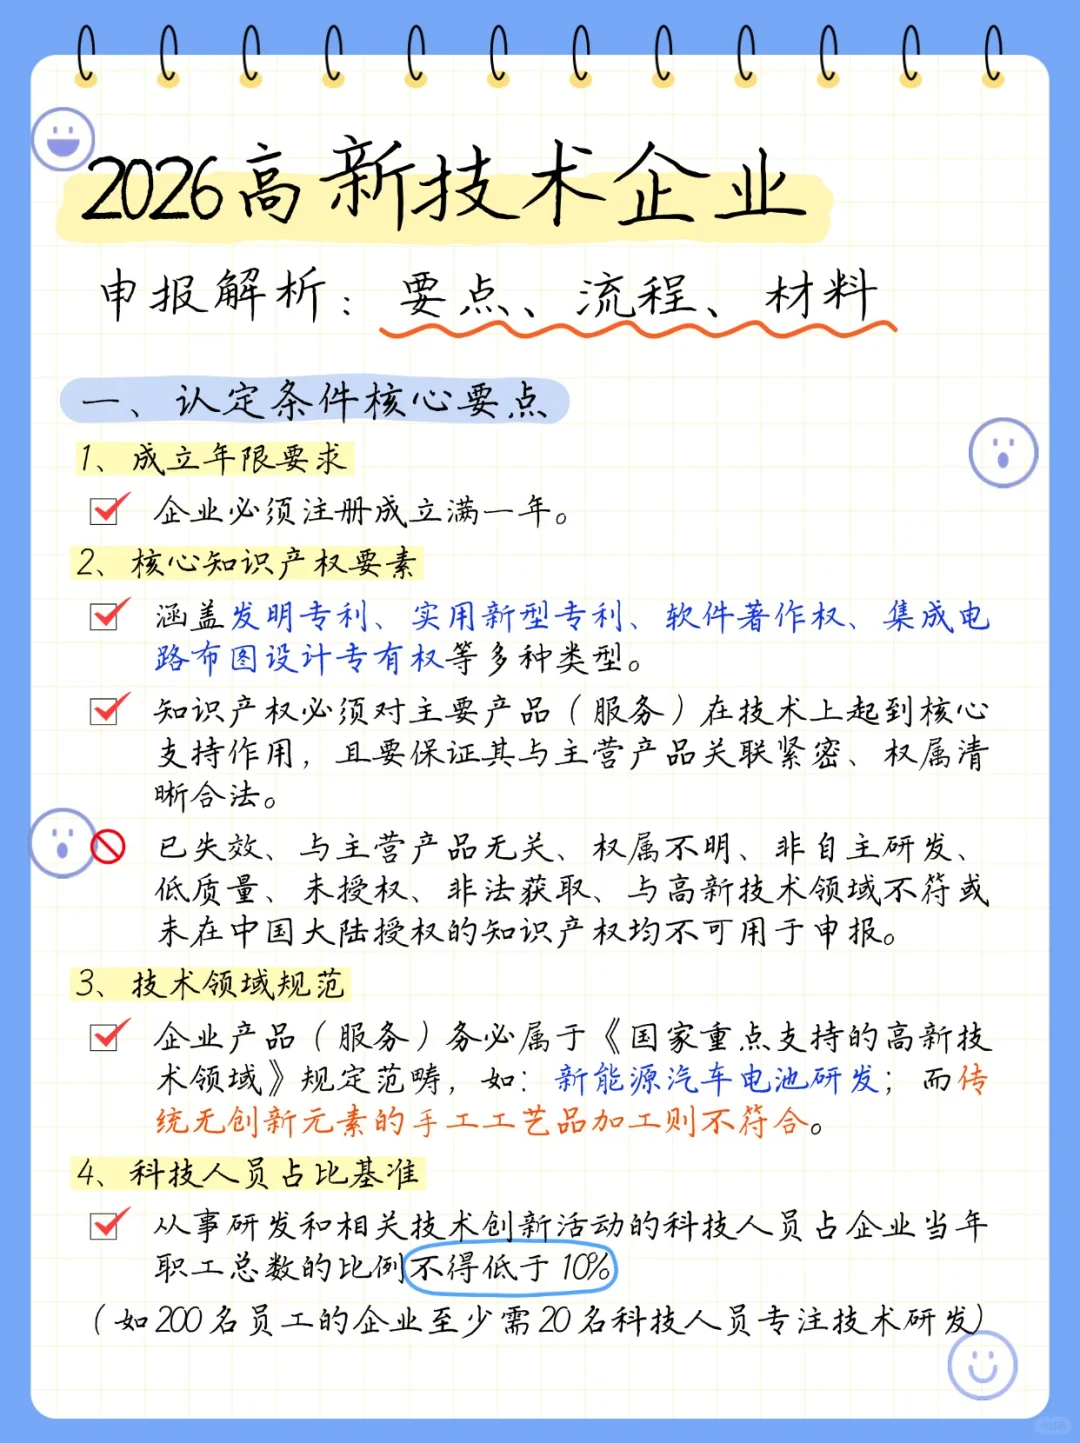 2026高新技术企业
申报解析：要点、流程、材料
一、认定条件核心要点
1、成立年限要求
企业必须注册成立满一年。
2、核心知识产权要素
涵盖发明专利、实用新型专利、软件著作权、集成电
路布图设计专有权等多种类型。
知识产权必须对主要产品（服务）在技术上起到核心
支持作用，且要保证其与主营产品关联紧密、权属清
晰合法。
已失效、与主营产品无关、权属不明、非自主研发、
低质量、未授权、非法获取、与高新技术领域不符或
未在中国大陆授权的知识产权均不可用于申报。
3、技术领域规范
企业产品（服务）务必属于《国家重点支持的高新技
术领域》规定范畴，如：新能源汽车电池研发；而传
统无创新元素的手工工艺品加工则不符合。
4、科技人员占比基准
从事研发和相关技术创新活动的科技人员占企业当年
职工总数的比例不得低于10%
（如200名员工的企业至少需20名科技人员专注技术研发）